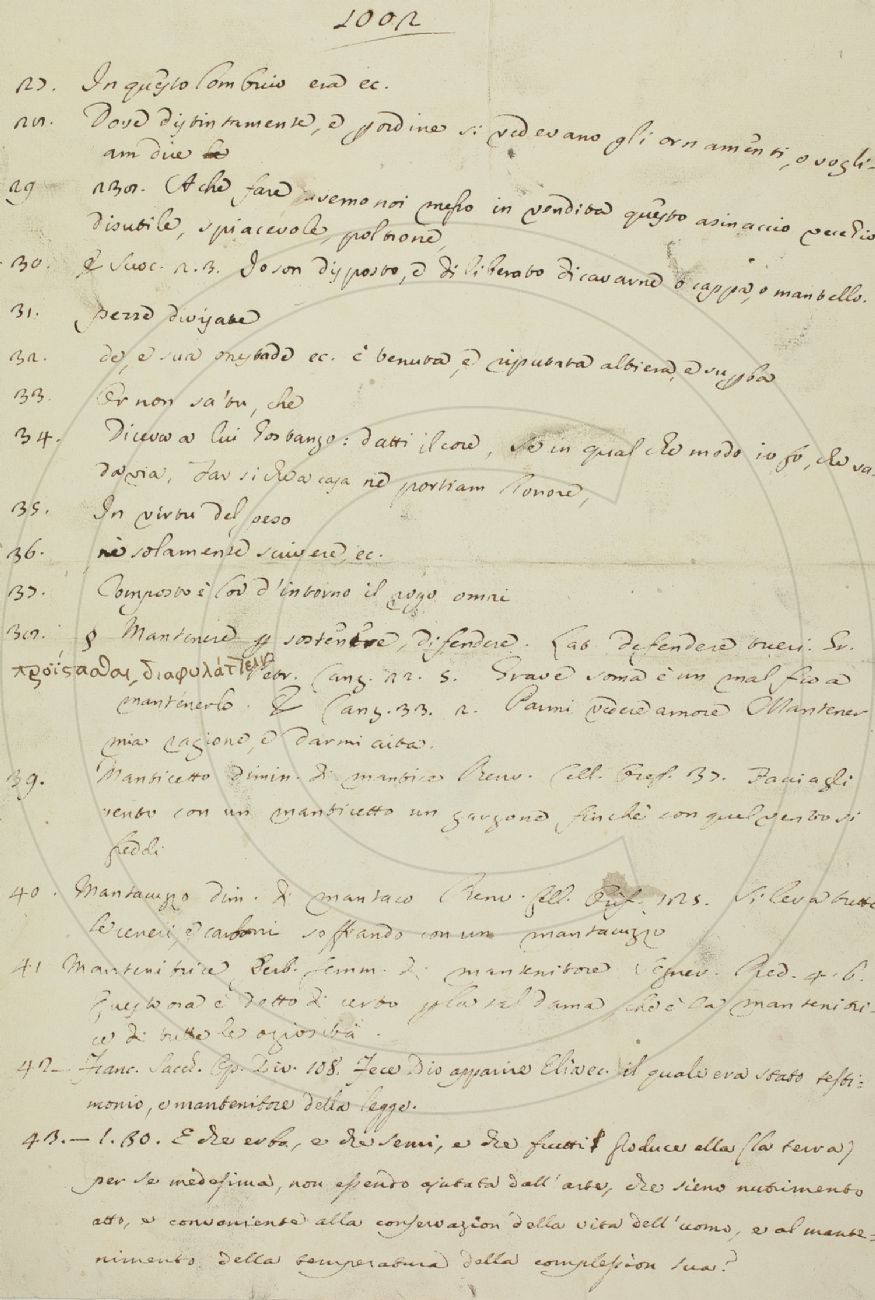 1002
27. In questo lombrico era ec.
28. Dove distintamente, e per ordine si vedevano gli ornamenti, o vogli-
am dire le
29 238. A che fare avemo noi messo in vendita questo asinaccio vecchio
disutile, spiacevole, poltrone,
30. E Suoc. 2. 3. Io son disposto, e diliberato di cavarne o cappa, o mantello.
31. pezze divisate
32. de, e sua onestade ec. è tenuta, e riputata altiera, e superba
33. Or non sa' tu, che
34. Diceva a lui Costanzo: datti il core, Se in qualche modo io fo, che va-
da via, Far sì che a casa ne portiam l'onore,
35. In virtù del peso
36. nè solamente scrivere, ec.
37. Composto è lor d'intorno il rogo omai
38. § Mantenere per sostenere, difendere. Lat. defendere tueri. Gr.
προΐςασθαι, διαφυλάττειν Petr. Canz. 22. 5. Grave soma è un mal fio a
mantenerlo. E Canz. 33. 2. Parmi vedere amore Mantener
mia ragione, e darmi aita.
39. Manticetto dimin. di mantice Benv. Cell. Oref. 37. Facciagli
vento con un manticetto un garzone finchè con quel vento si
freddi
40. Mantacuzzo dim. di mantaco Benv. Cell. Oref. 125. Si leva tutte
le ceneri, e carboni soffiando con un mantacuzzo
41 Mantenitrice Verb. femm. di mantenitore Segner. Pred. 4. 6.
Questo ora è detto di certo per la tal dama che è la mantenitri-
ce di tutte le oziosità.
42 – Franc. Sacch. Op. Div. 108. Fece Dio apparire Elia ec. il quale era stato testi-
monio, e mantenitore della legge.
43. – 1. 80. E che erba, e che semi, e che frutti produce ella (la terra)
per se medesima, non essendo ajutata dall'arte, che sieno nutrimento
atto, e conveniente alla conservazion della vita dell'uomo, e al mante-
nimento della temperatura della complession sua?